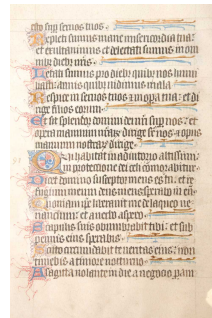 sto sup servos tuos.
Repleti sumus mane misericordia tua:
et exultavimus et delectati sumus in om
nibz diebz nris.
Letati sumus pro diebz quibz nos humi
liasti: annis quibz vidimus mala.
Respice in servos tuos et in opa tua: et di
rige filios eorum.
Et sit splendor domini dei nri sup nos: et
opera manuum nrarz dirige sr nos et opus
manuum nostrarz dirige.
Qui habitat in adiutorio altissimi:
in protectione dei celi comorabitur.
Dicet domino susceptor meus es tu: et re
fugium meum deus meus sperabo in eu
Quoniam ipe liberavit me de laqueo ve
nancium: et a verbo aspero.
Scapulis suis obumbrabit tibi: et sub
pennis eius sperabis.
Scuto circumdabit te veritas eius: non
timebis a timore nocturno.
A sagitta volante in die a negocio pam